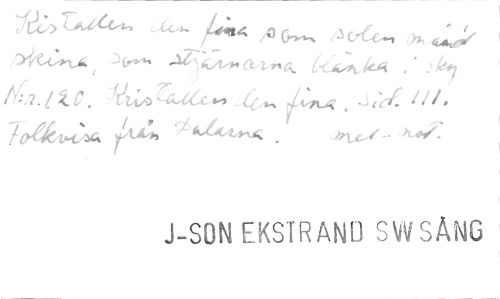 Kristallen den fina som solen månd
skina, som stjärnorna blänka i sky.
N:r. 120. Kristallen den fina. Sid. 111.
Folkvisa från Dalarna. med not.
J-SON EKSTRAND SW SÅNG